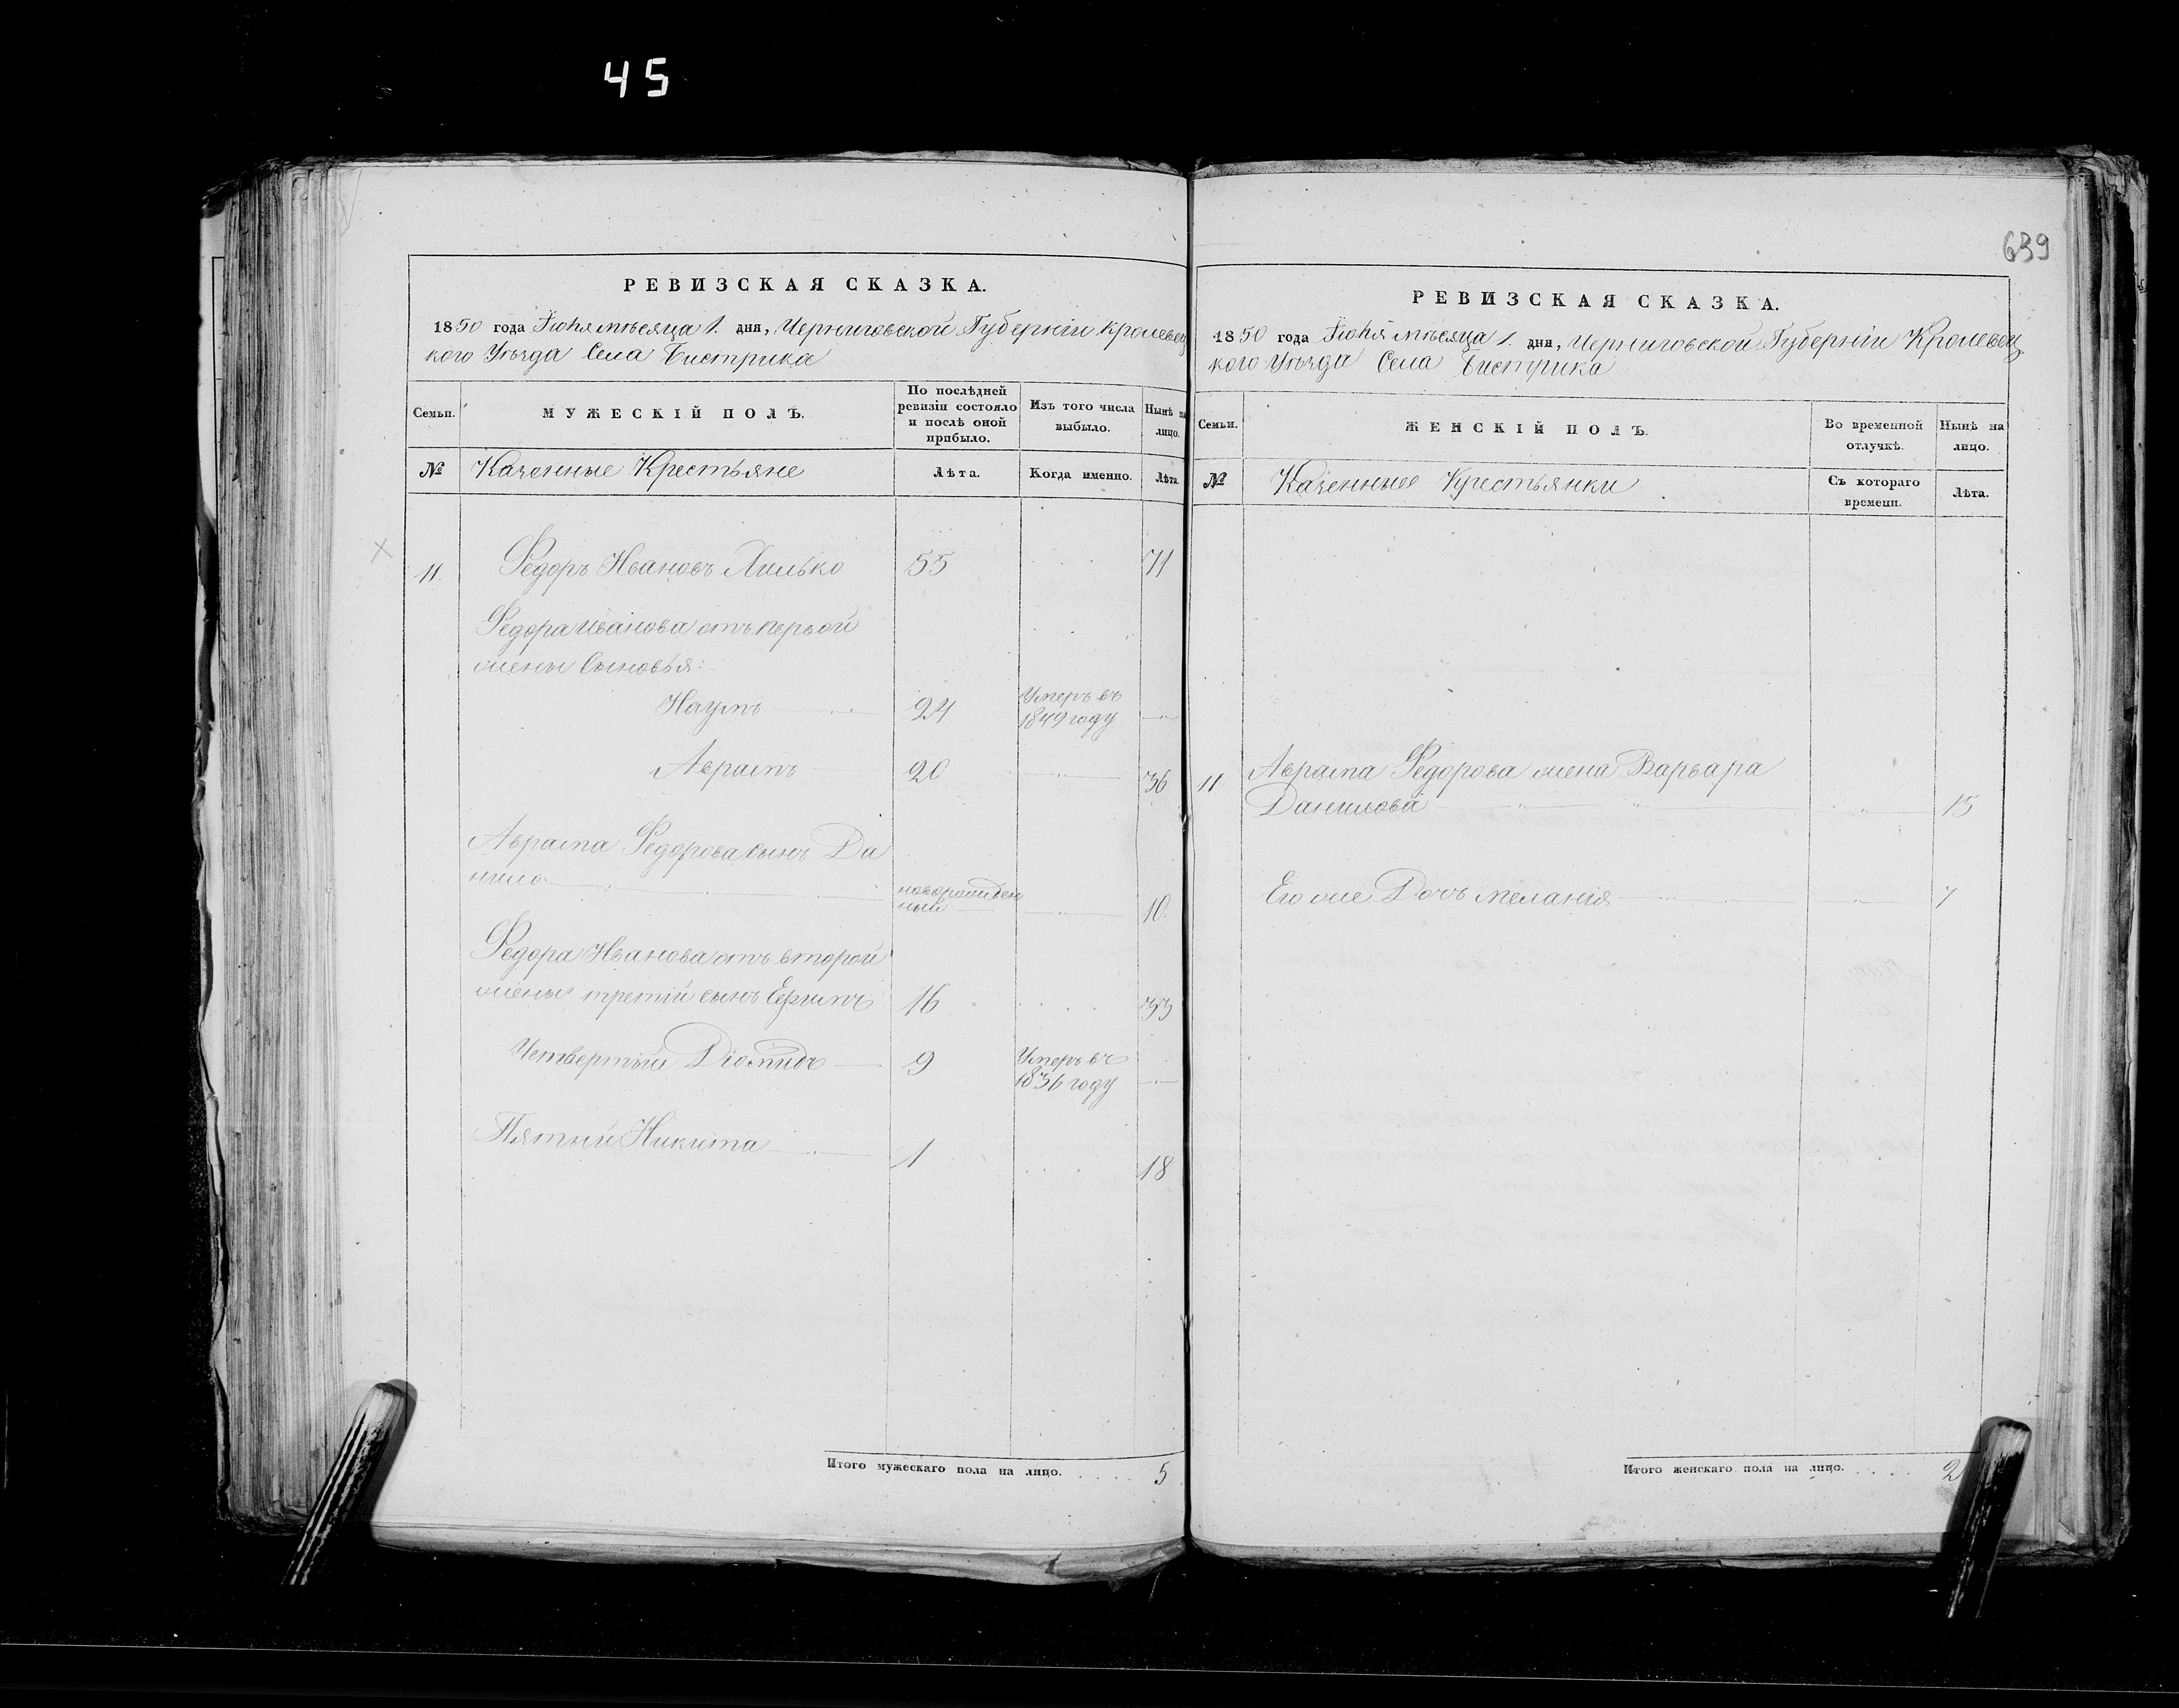 45
639
РЕВИЗСКАЯ СКАЗКА.
1850 года Іюня мѣсяца 1. дня, Черниговской Губерніи Кролевец
кого Уѣзда Села Бистрика
Семьи.
МУЖЕСКІЙ ПОЛЪ.
По послѣдней
ревизіи состояло
и послѣ оной
прибыло.
Изъ того числа
выбыло.
Нынѣ на
лицо.
№
Казенные Крестьяне
Лѣта.
Когда именно.
Лѣта.
11. Федоръ Ивановъ Хилько 55 71
Федора Иванова отъ первой
жены Сыновья:
Наумъ 24 Умеръ въ
1849 году
Аврамъ 20 36
Аврама Федорова сынъ Да
нило новорожден
ный 10.
Федора Иванова отъ второй
жены третій сынъ Ефимъ 16 33
Четвертый Діомидъ 9 Умеръ въ
1836 году
Пятый Никита 1 18
Итого мужескаго пола на лицо. . . . . 5
РЕВИЗСКАЯ СКАЗКА.
1850 года Іюня мѣсяца 1. дня, Черниговской Губерніи Кролевец
кого Уѣзда Села Бистрика
Семьи.
ЖЕНСКІЙ ПОЛЪ.
Во временной
отлучкѣ.
Нынѣ на
лицо.
№
Казенные Крестьянки
Съ котораго
времени.
Лѣта.
11 Аврама Федорова жена Варвара
Данилова 15
Его же Дочь Меланія 7
Итого женскаго пола на лицо. . . . . 2